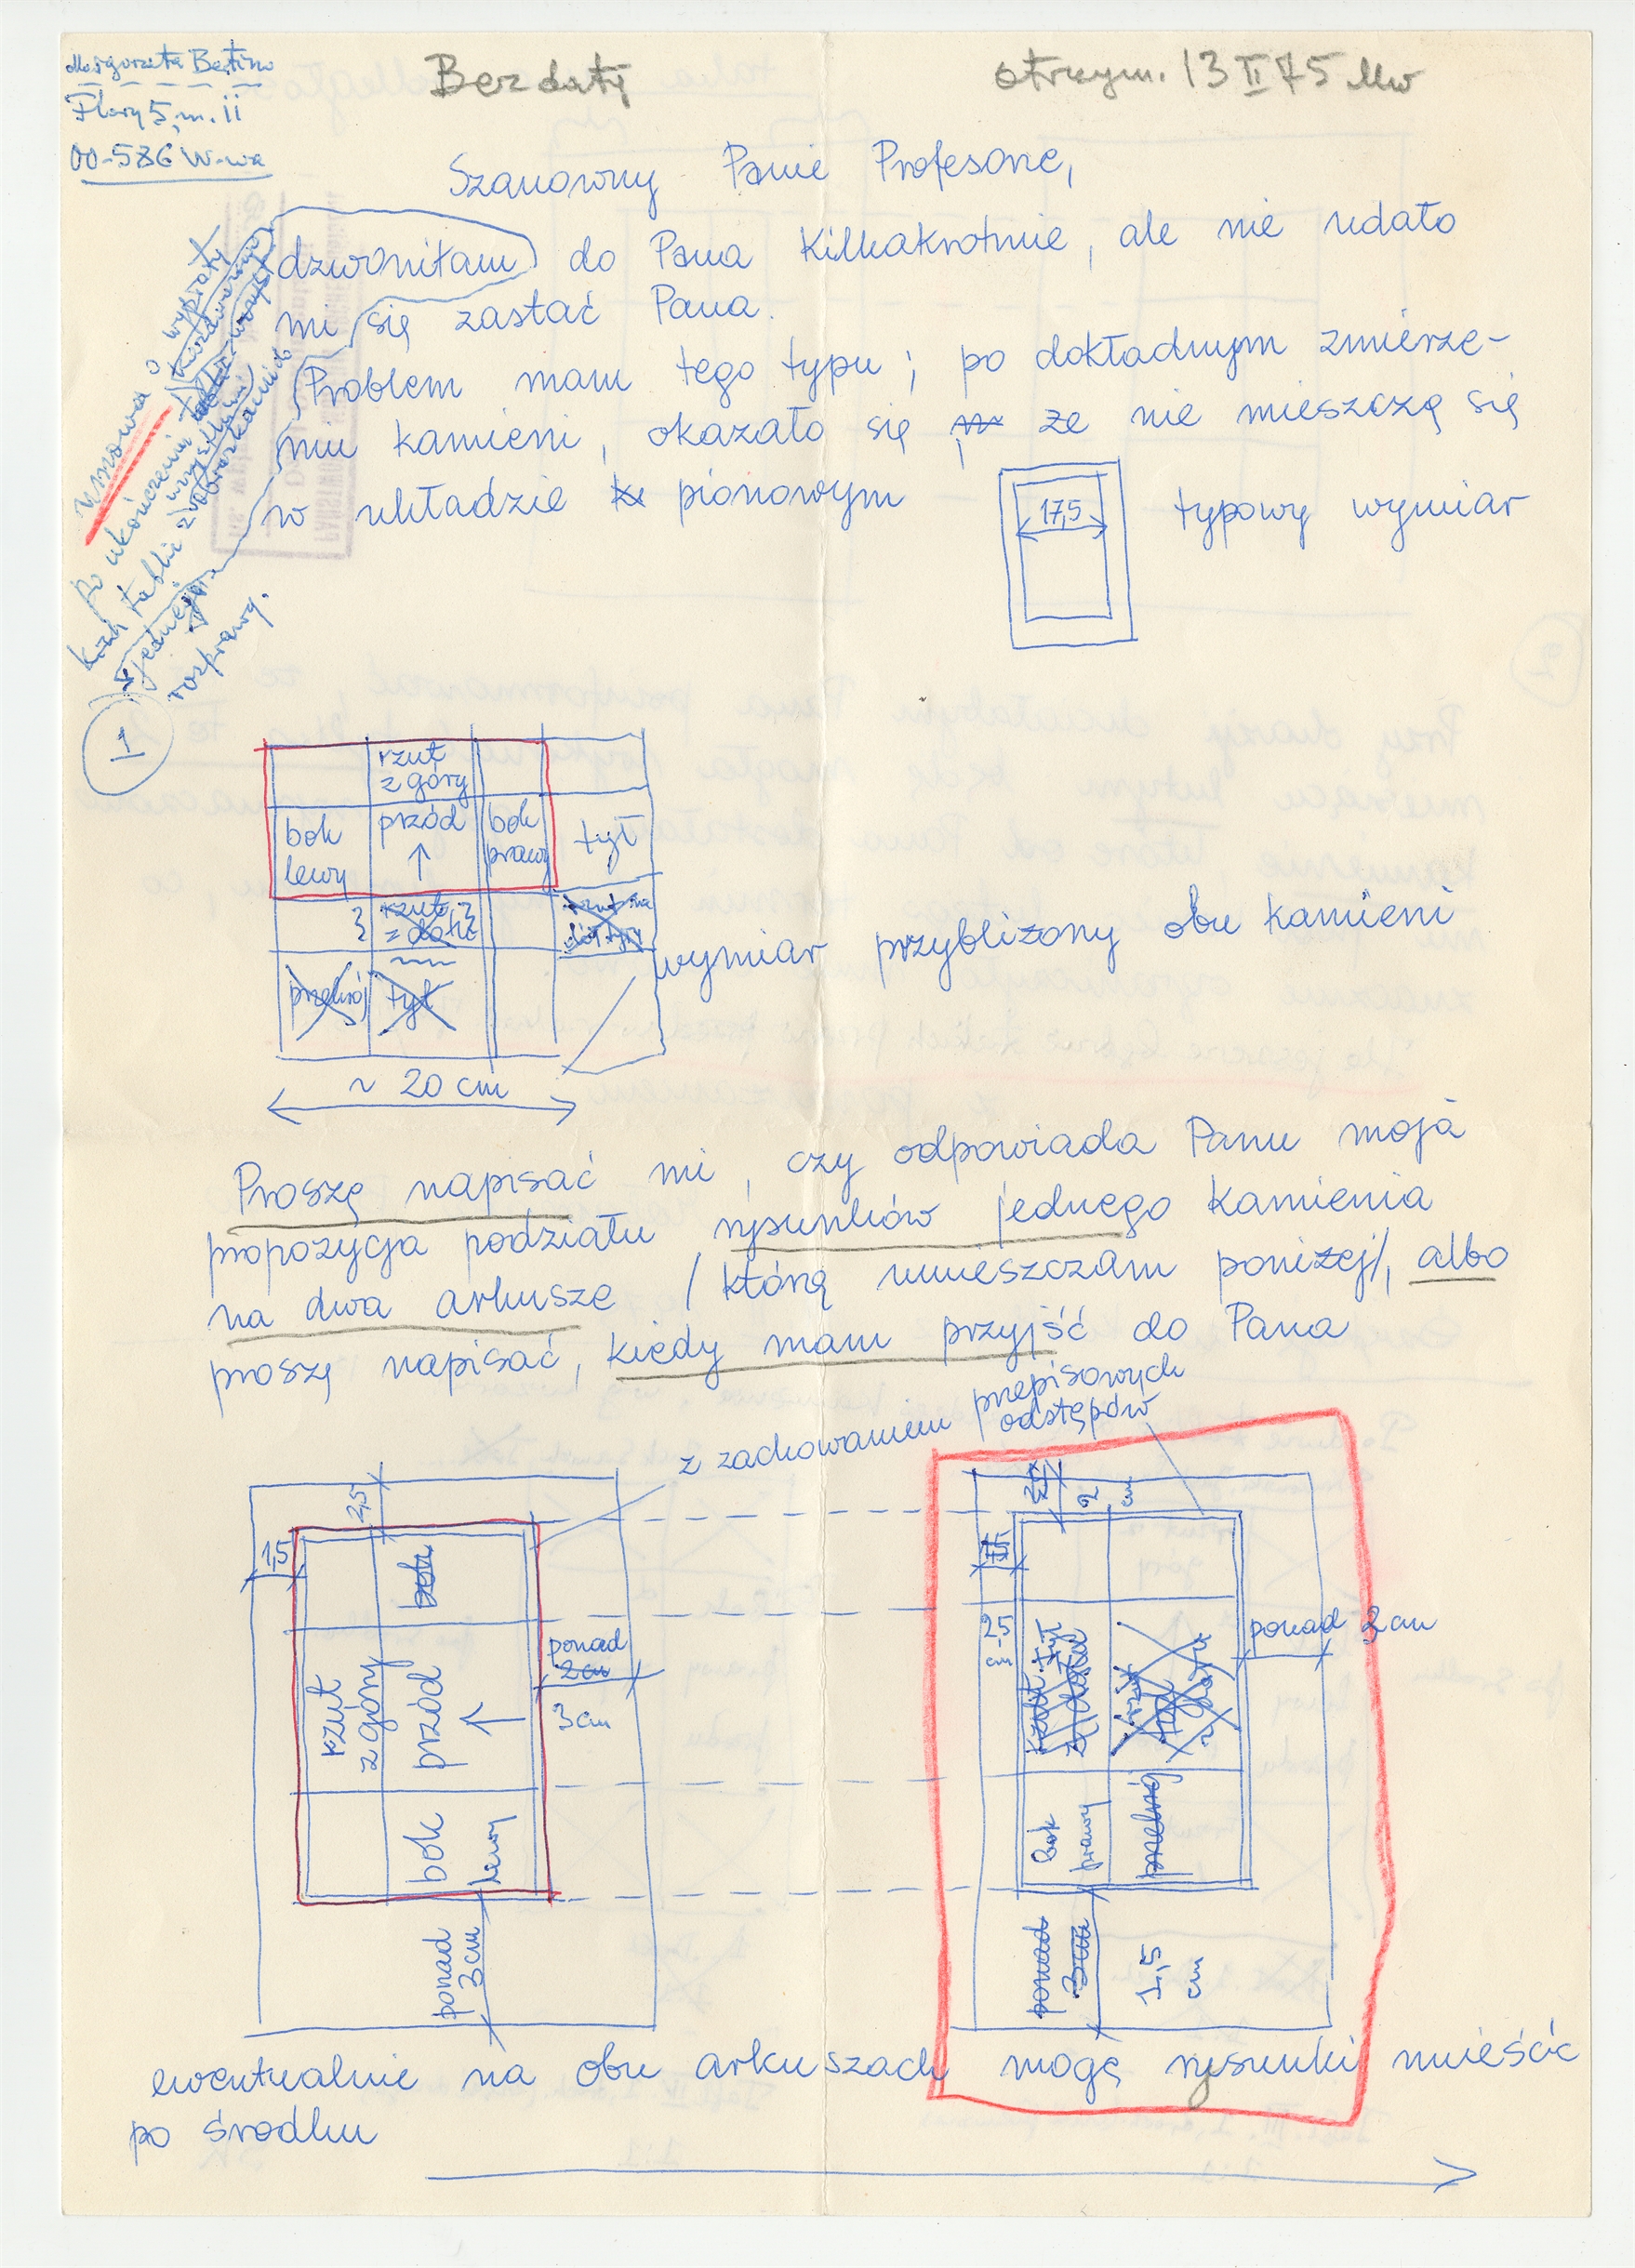 Małgorzata
Flory 5, m. 11
00-586 W-wa
Bez daty
otrzym. 13 II 75 Mw
Szanowny Panie Profesorze,
dzwoniłam do Pana kilkakrotnie, ale nie udało
mi się zastać Pana.
Problem mam tego typu; po dokładnym zmierze-
niu kamieni, okazało się że nie mieszczą się
w układzie pionowym
17,5
typowy wymiar
umowa o wypłaty
po ukończeniu
jednej
rozprawy.
1
rzut
z góry
bok
lewy
przód
↑
bok
prawy
tył
rzut
z dołu
przekrój
tył
wymiar przybliżony obu kamieni
~ 20 cm
Proszę napisać mi, czy odpowiada Panu moja
propozycja podziału rysunków jednego kamienia
na dwa arkusze / którą umieszczam poniżej/, albo
proszę napisać, kiedy mam przyjść do Pana
z zachowaniem przepisowych
odstępów
2,5
1,5
rzut
z góry
przód
↑
bok
lewy
ponad
2 cm
3 cm
ponad
3 cm
2
cm
2,5
cm
tył
bok
prawy
przekrój
ponad 2 cm
ponad
3 cm
1,5
cm
ewentualnie na obu arkuszach mogę rysunki umieścić
po środku